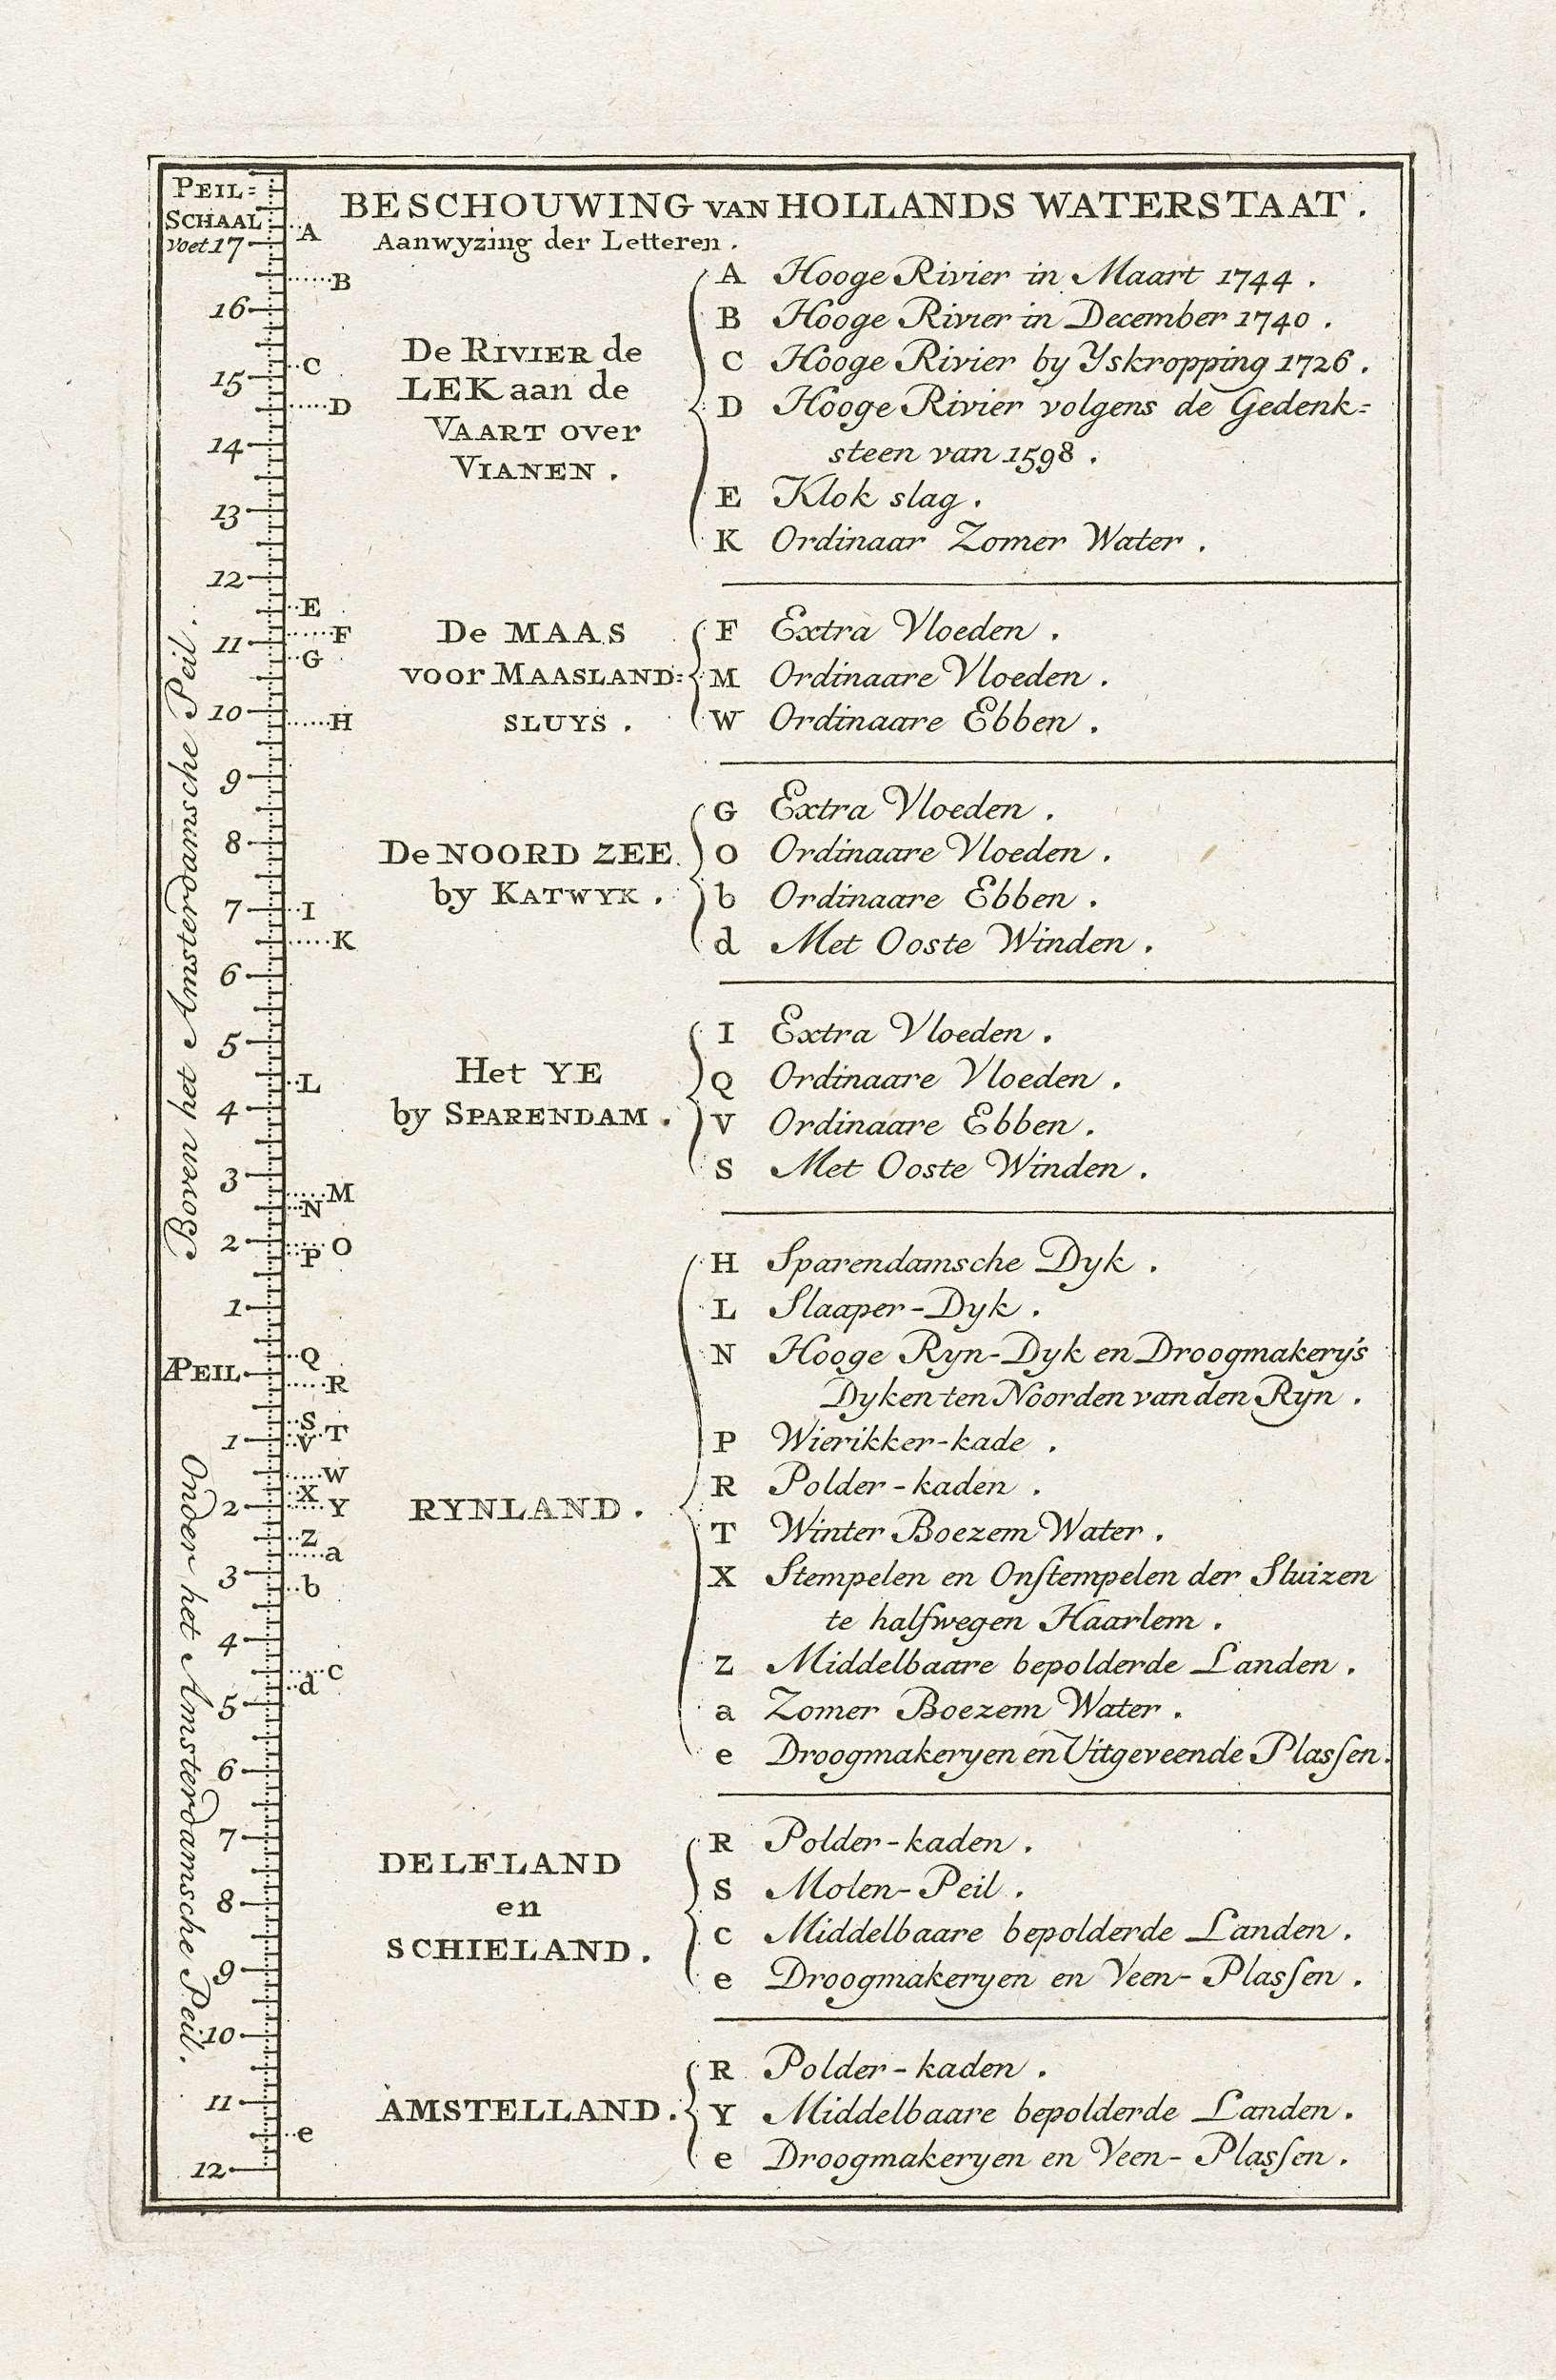 PEIL=
SCHAAL
voet 17
16
15
14
13
12
11
10
9
8
7
6
5
4
3
2
1
ÆPEIL
1
2
3
4
5
6
7
8
9
10
11
12
Boven het Amsterdamsche Peil.
Onder het Amsterdamsche Peil.
A
B
C
D
E
F
G
H
I
K
L
M
N
O
P
Q
R
S
T
V
W
X
Y
Z
a
b
c
d
e
BESCHOUWING VAN HOLLANDS WATERSTAAT.
Aanwyzing der Letteren.
De RIVIER de
LEK aan de
VAART over
VIANEN.
A Hooge Rivier in Maart 1744.
B Hooge Rivier in December 1740.
C Hooge Rivier by Yskropping 1726.
D Hooge Rivier volgens de Gedenk=
steen van 1598.
E Klok slag.
K Ordinaar Zomer Water.
De MAAS
voor MAASLAND=
SLUYS.
F Extra Vloeden.
M Ordinaare Vloeden.
W Ordinaare Ebben.
De NOORD ZEE
by KATWYK.
G Extra Vloeden.
O Ordinaare Vloeden.
b Ordinaare Ebben.
d Met Ooste Winden.
Het YE
by SPARENDAM.
I Extra Vloeden.
Q Ordinaare Vloeden.
V Ordinaare Ebben.
S Met Ooste Winden.
RYNLAND.
H Sparendamsche Dyk.
L Slaaper-Dyk.
N Hooge Ryn-Dyk en Droogmakery's
Dyken ten Noorden van den Ryn.
P Wierikker-kade.
R Polder-kaden.
T Winter Boezem Water.
X Stempelen en Onſtempelen der Sluizen
te halfwegen Haarlem.
Z Middelbaare bepolderde Landen.
a Zomer Boezem Water.
e Droogmakeryen en Uitgeveende Plasſen.
DELFLAND
en
SCHIELAND.
R Polder-kaden.
S Molen-Peil.
c Middelbaare bepolderde Landen.
e Droogmakeryen en Veen-Plasſen.
AMSTELLAND.
R Polder-kaden.
Y Middelbaare bepolderde Landen.
e Droogmakeryen en Veen-Plasſen.